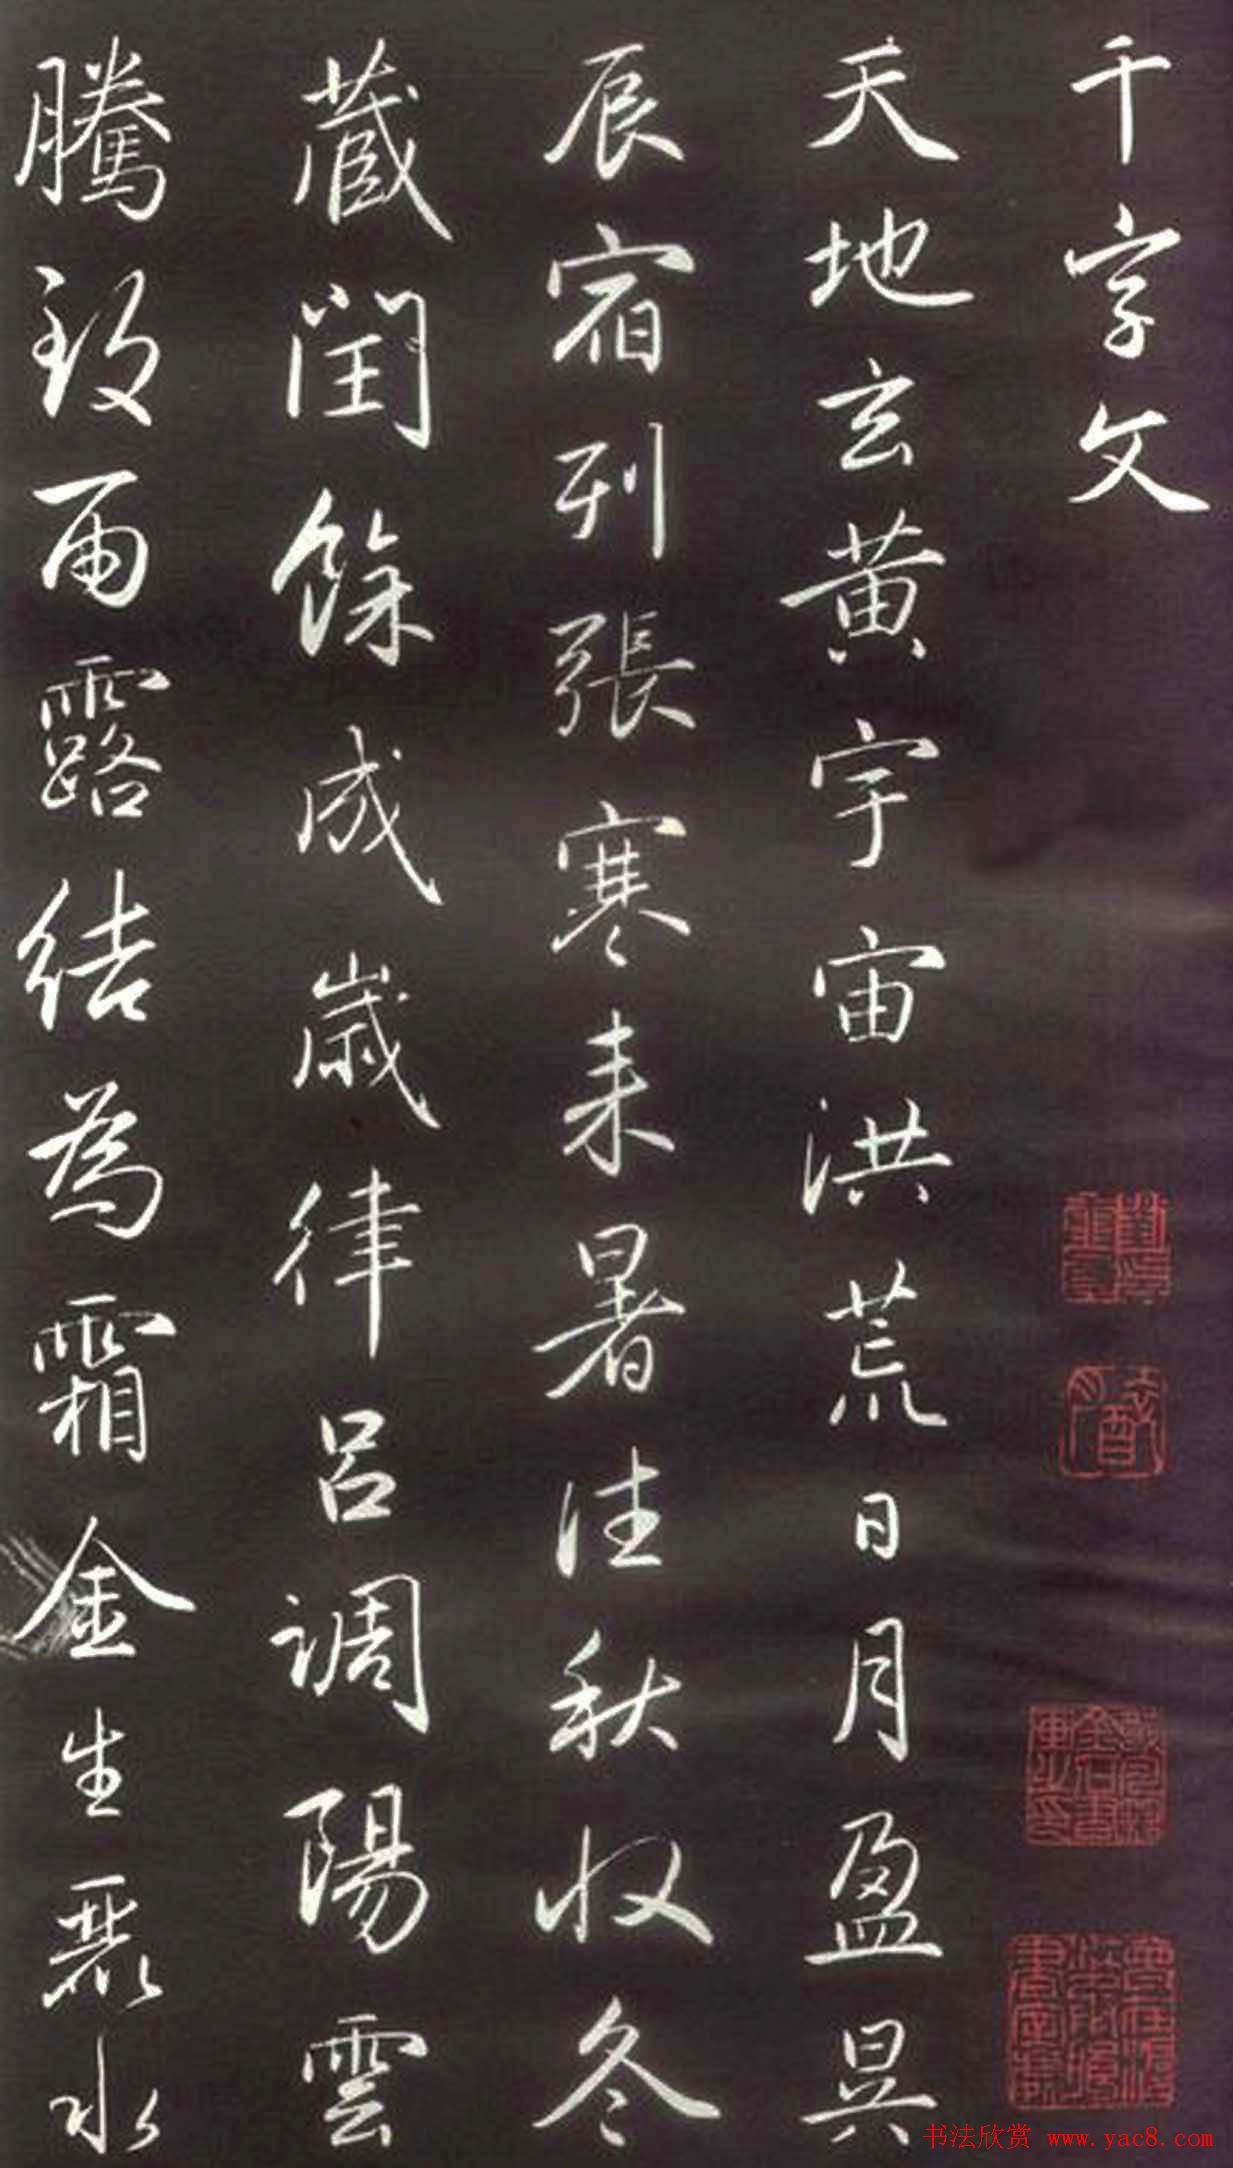 千字文
天地玄黃宇宙洪荒日月盈昃
辰宿列張寒来暑往秋収冬
蔵閏餘成歲律呂調陽雲
騰致雨露結為霜金生麗水
书法欣赏 www.yac8.com